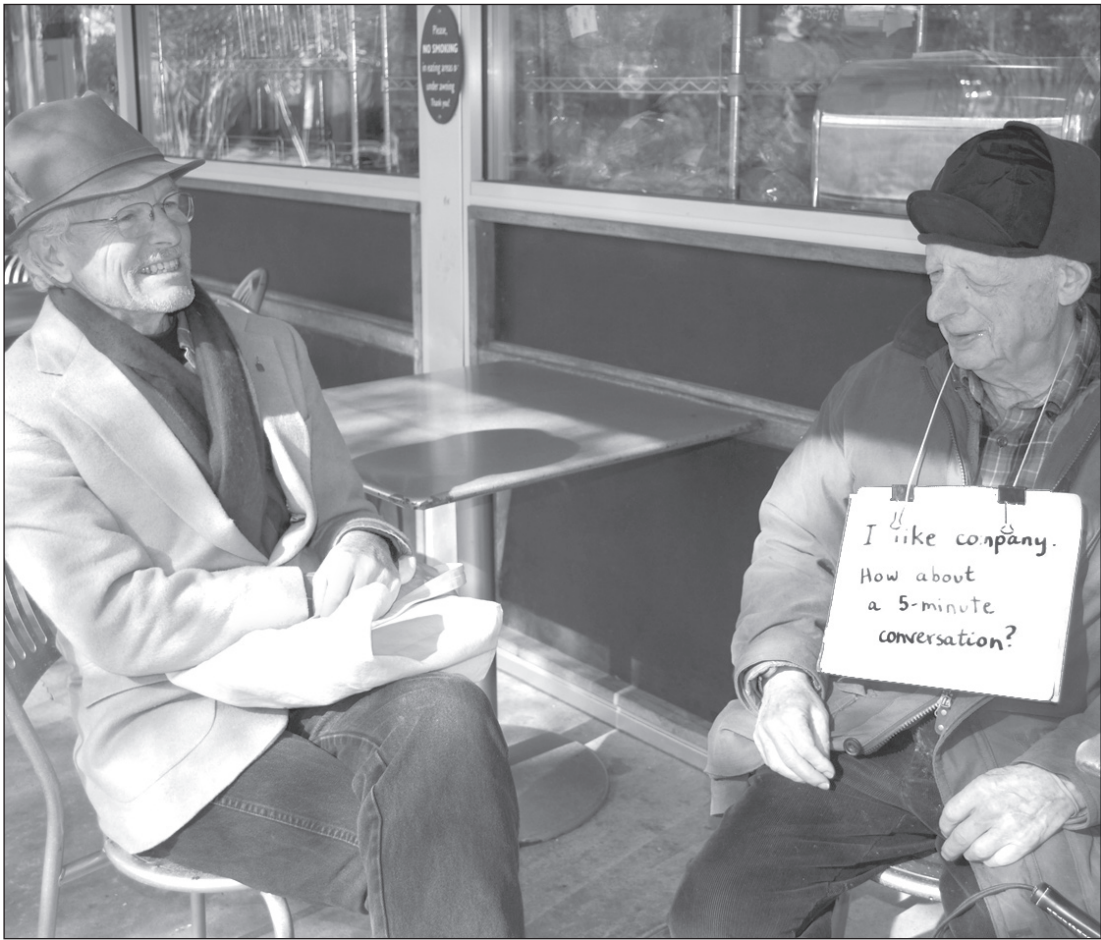 Please,
NO SMOKING
in eating areas or
under awning
Thank you!
I like company.
How about
a 5-minute
conversation?